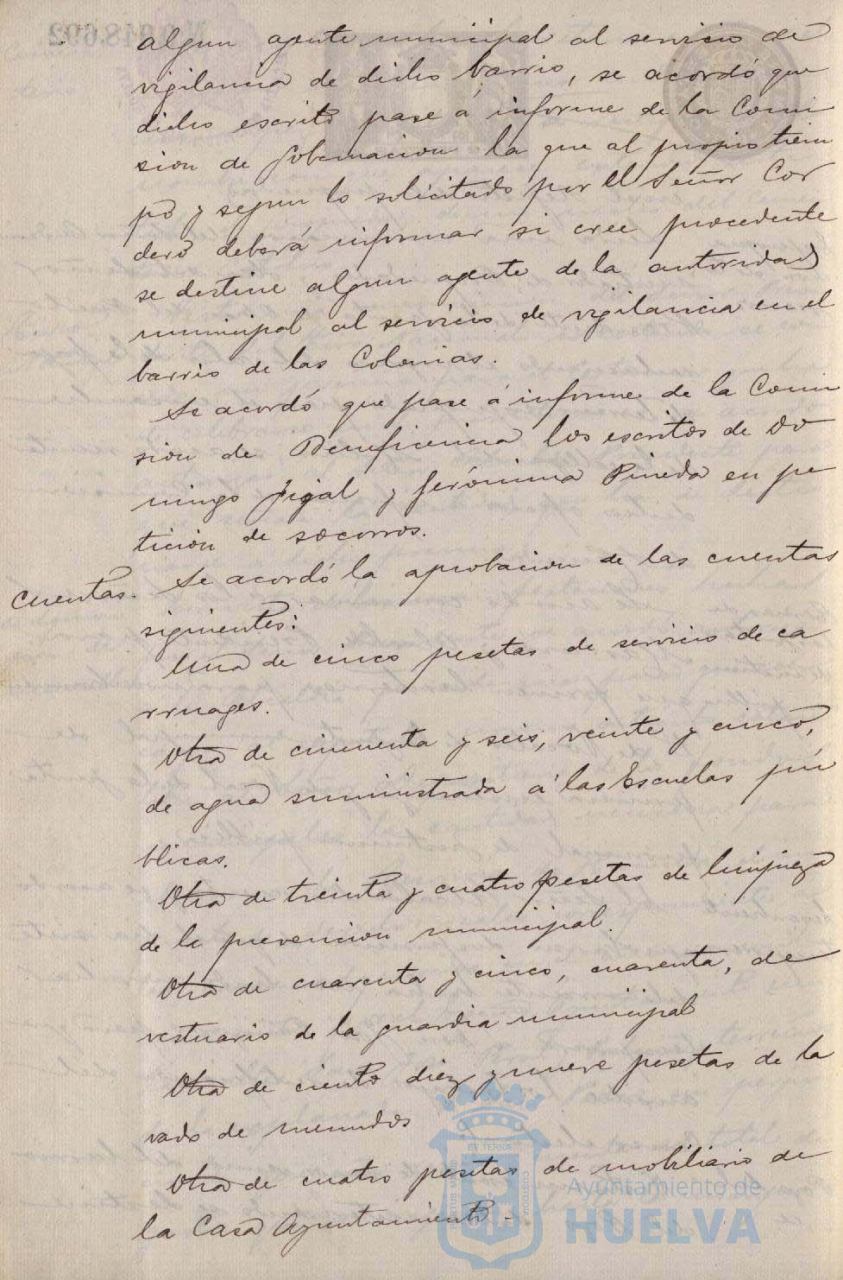 algun agente municipal al servicio de
vigilancia de dicho barrio, se acordó que
dicho escrito pase á informe de la Comi
sion de Gobernacion la que al propio tiem
po y segun lo solicitado por el Señor Cor
dero deberá informar si cree procedente
se destine algun agente de la autoridad
municipal al servicio de vigilancia en el
barrio de las Colonias.
Se acordó que pase á informe de la Comi
sion de Beneficencia los escritos de Do
mingo Jigal y Gerónima Pineda en pe
ticion de socorros.
Cuentas. Se acordó la aprobacion de las cuentas
siguientes:
Una de cinco pesetas de servicio de ca
rruages.
Otra de cincuenta y seis, veinte y cinco,
de agua suministrada á las Escuelas pú
blicas.
Otra de treinta y cuatro pesetas de limpieza
de la prevencion municipal.
Otra de cuarenta y cinco, cuarenta, de
vestuario de la guardia municipal
Otra de ciento diez y nueve pesetas de la
vado de menudos
Otra de cuatro pesetas de mobiliario de
la Casa Ayuntamiento.-
Ayuntamiento de
HUELVA